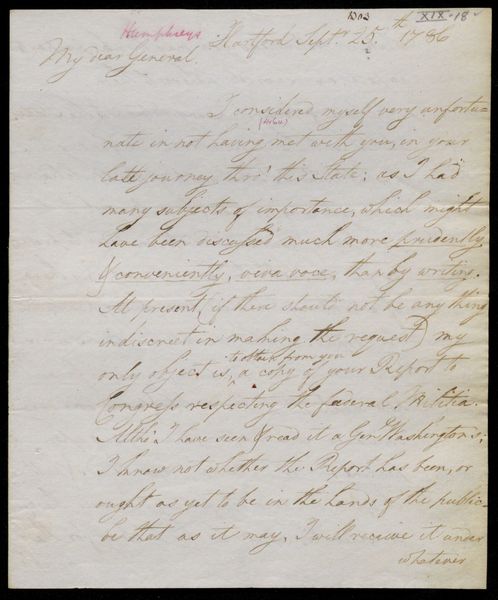 Humphreys
XIX-18
Hartford Septr. 25th 1786
My dear General.
I considered myself very unfortu=
nate in not having met with you, in your
late journey thro' this State; as I had
many subjects of importance, which might
have been discussed much more prudently
& conveniently, viva voce, than by writing.
At present, if there should not be any thing
indiscreet in making the request) my
to obtain from you
only object is, a copy of your Report to
Congress respecting the fœderal Militia.
Altho' I have seen & read it a Genl. Washington's;
I know not whether the Report has been, or
ought as yet to be in the hands of the public-
be that as it may, I will receive it under
whatever